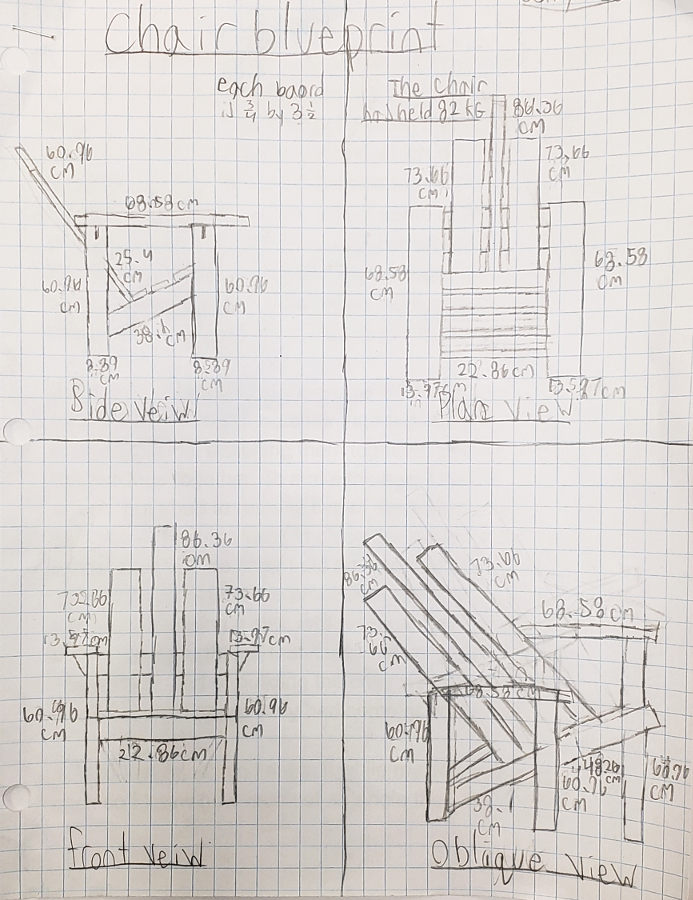 Chair blueprint
each board
is 3/4 by 3 1/2
The chair
has held 82 KG
60.96
CM
68.58 cm
25.4
CM
60.96
CM
60.96
CM
38.1
CM
8.89
CM
8.89
CM
Side veiw
86.36
CM
73.66
CM
73.66
CM
68.58
CM
68.58
CM
22.86 cm
13.97cm
13.97cm
Plan view
86.36
CM
73.66
CM
73.66
CM
13.97cm
13.97cm
60.96
CM
60.96
CM
22.86 cm
front veiw
86.36
CM
73.66
CM
73.66
CM
68.58 cm
68.58 cm
60.96
CM
60.96
CM
60.96
CM
38.1
CM
Oblique view